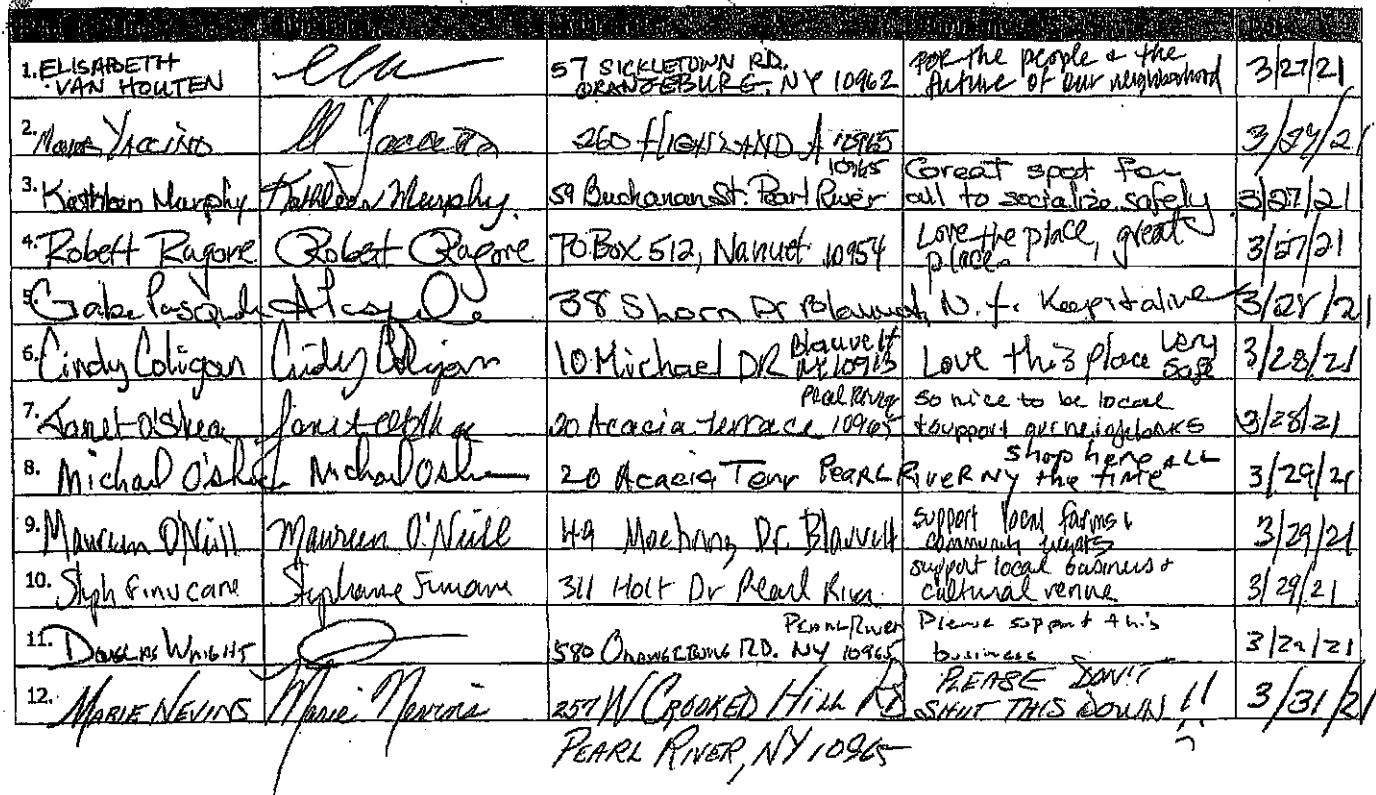 1. ELISABETH VAN HOUTEN 57 SICKLETOWN RD. ORANGEBURG, NY 10962 FOR the people & the future of our neighborhood 3/27/21
2. Yaccino 260 HIGHLAND A 10965 3/27/21
3. Kathleen Murphy Kathleen Murphy. 59 Buchanan St. Pearl River 10965 Great spot for all to socialize safely 3/27/21
4. Robert Ragone Robert Ragone PO.BOX 512, Nanuet 10954 Love the place, great place. 3/27/21
5. Gabe 38 Shorn Dr Blauvelt, N.Y. Keep it alive 3/28/21
6. Cindy Coligan Cindy Coligan 10 Michael DR Blauvelt NY 10913 Love this place very safe 3/28/21
7. Janet O'Shea Janet O'Shea 20 Acacia terrace Pearl River 10965 so nice to be local & support our neighbors 3/28/21
8. Michael O'Shea Michael O'Shea 20 Acacia Terr PEARL RIVER NY shop here ALL the time 3/29/21
9. Maureen O'Neill Maureen O'Neill 49 Dr. Blauvelt support local farms & community 3/29/21
10. Steph Finucane Stephanie Finucane 311 Holt Dr Pearl River support local business & cultural venue 3/29/21
11. Douglas Wright 580 Orangeburg RD. Pearl River NY 10965 Please support this business 3/29/21
12. MARIE NEVINS Marie Nevins 257 W CROOKED HILL RD PLEASE DON'T SHUT THIS DOWN !! 3/31/21
PEARL RIVER, NY 10965